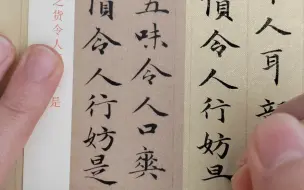 人耳
貨令人行妨是
五味令人口爽
貨令人行妨是
之货令人 是